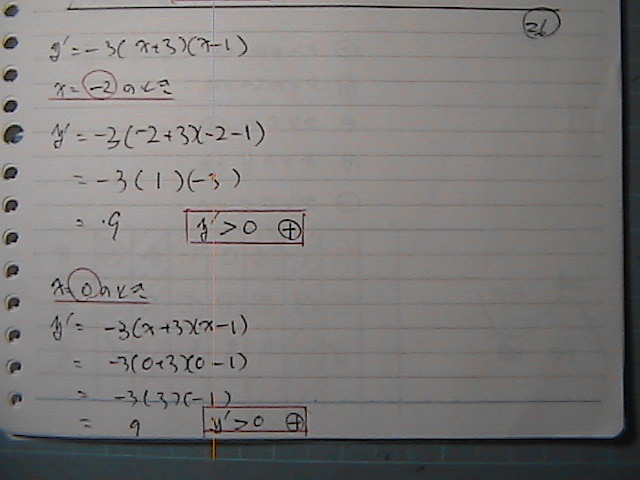 26
y' = -3(x+3)(x-1)
x = -2のとき
y' = -3(-2+3)(-2-1)
= -3(1)(-3)
= 9 y' > 0 ⊕
x = 0のとき
y' = -3(x+3)(x-1)
= -3(0+3)(0-1)
= -3(3)(-1)
= 9 y' > 0 ⊕